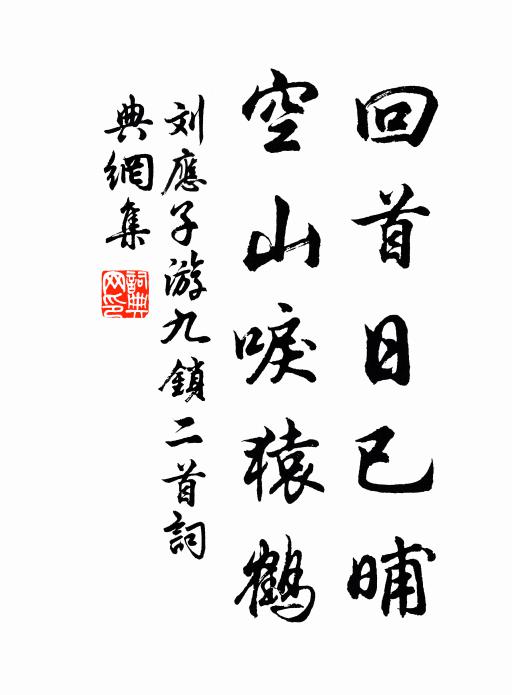 回首日已晡
空山唳猿鶴
刘應子游九鎖二首詞
典網集
詞典
网印